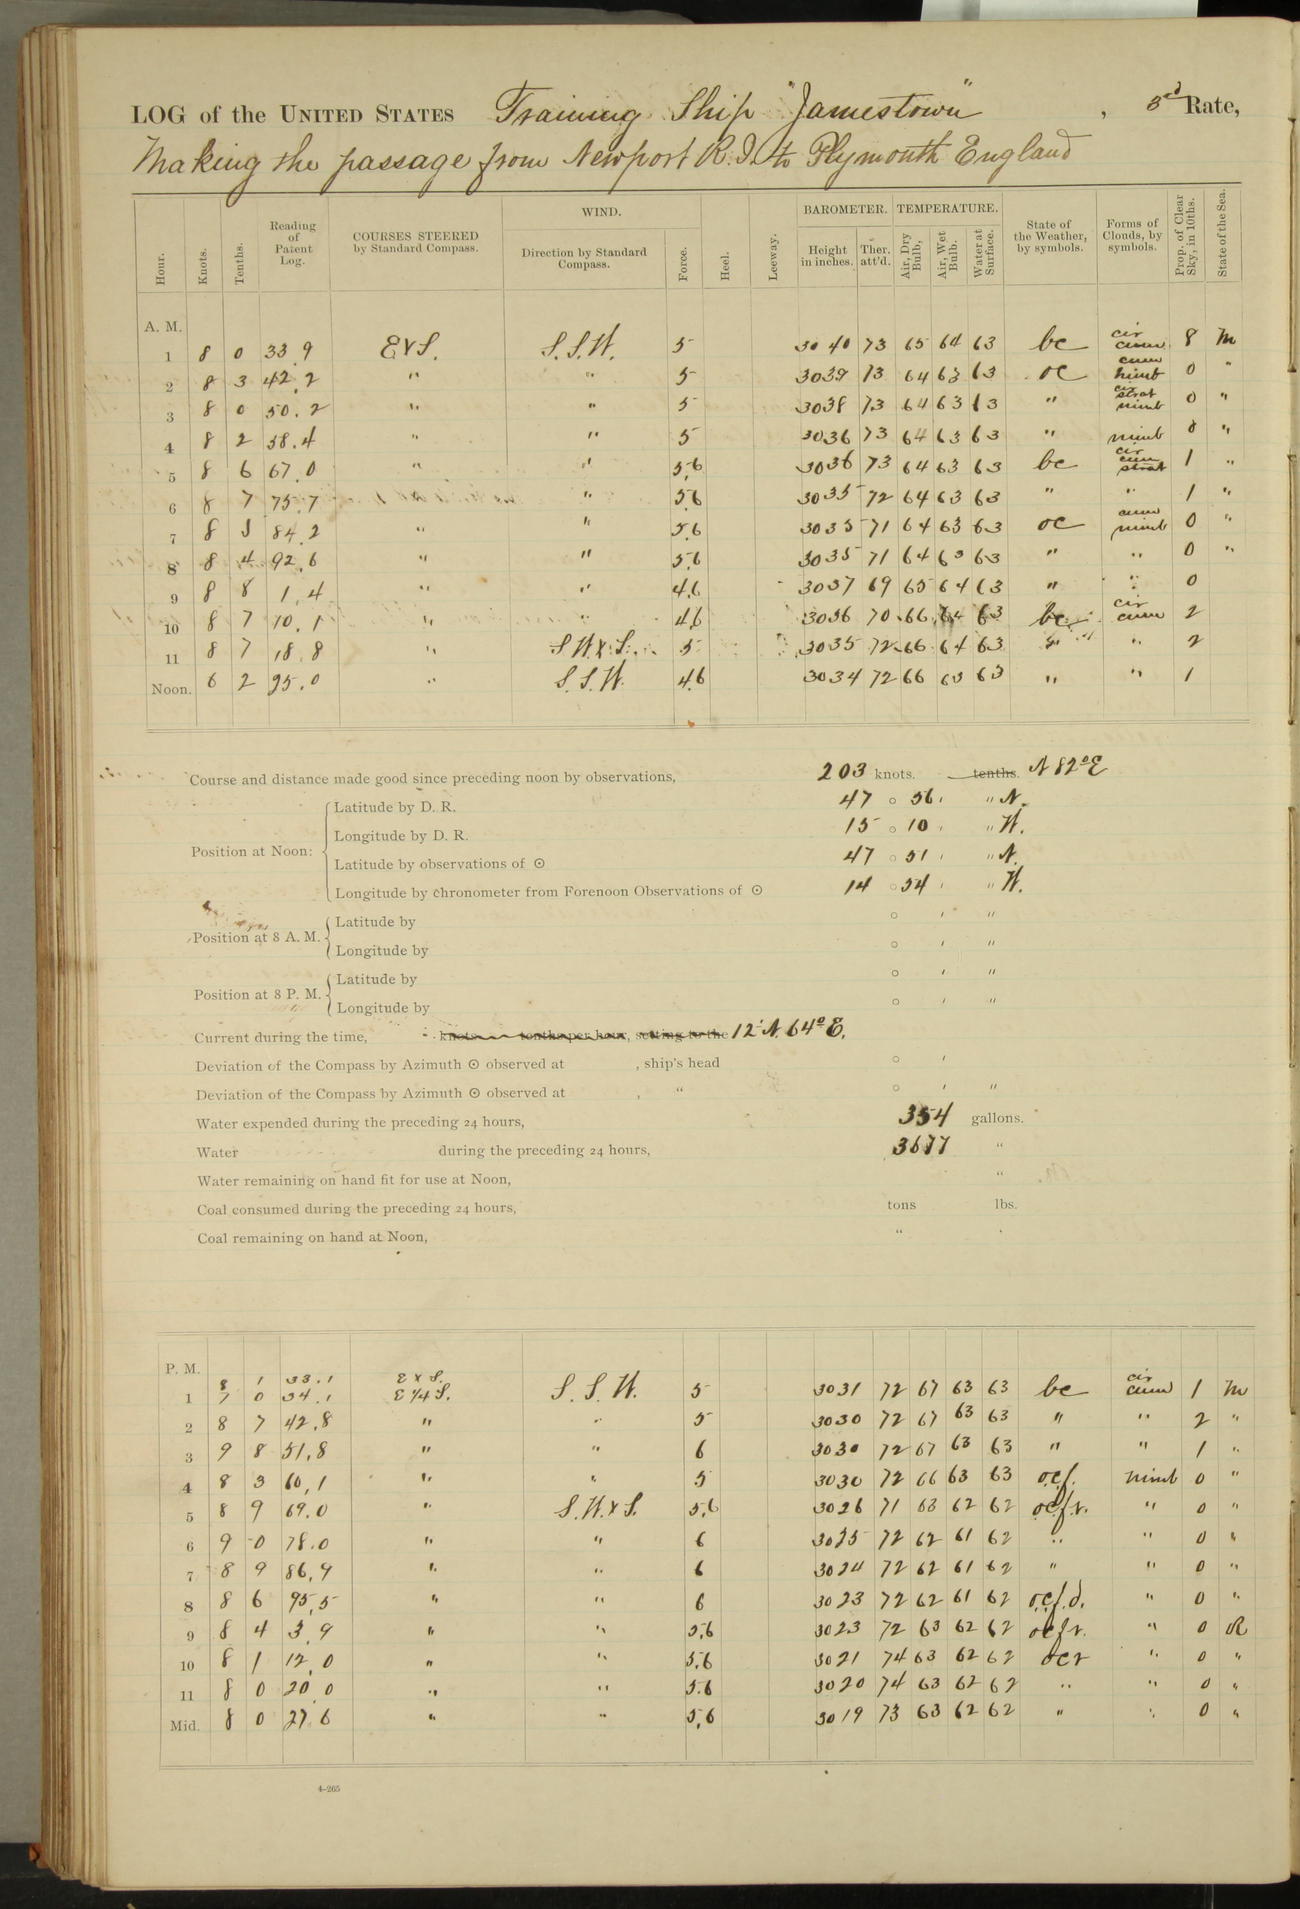 LOG of the UNITED STATES Training Ship "Jamestown", 3rd Rate,
Making the passage from Newport R.I. to Plymouth England
Hour. Knots. Tenths. Reading of Patent Log. COURSES STEERED by Standard Compass. WIND. Direction by Standard Compass. Force. Heel. Leeway. BAROMETER. Height in inches. Ther. att'd. TEMPERATURE. Air, Dry Bulb, Air, Wet Bulb. Water at Surface. State of the Weather, by symbols. Forms of Clouds, by symbols. Prop. of Clear Sky, in 10ths. State of the Sea.
A. M.
1 8 0 33.9 E x S. S.S.W. 5 30 40 73 65 64 63 bc cir cum 8 M
2 8 3 42.2 " " 5 3039 73 64 63 63 oc cum nimb 0 "
3 8 0 50.2 " " 5 3038 73 64 63 63 " cir strat nimb 0 "
4 8 2 58.4 " " 5 3036 73 64 63 63 " nimb 0 "
5 8 6 67.0 " " 5.6 3036 73 64 63 63 bc cir cum strat 1 "
6 8 7 75.7 " 5.6 3035 72 64 63 63 " " 1 "
7 8 5 84.2 " " 5.6 3035 71 64 63 63 oc cum nimb 0 "
8 8 4 92.6 " " 5.6 3035 71 64 63 63 " " 0 "
9 8 8 1.4 " " 4.6 3037 69 65 64 63 " " 0
10 8 7 10.1 " " 4.6 3036 70 66 64 63 bc cir cum 2
11 8 7 18.8 " S.W. x S. 5 3035 72 66 64 63 " " 2
Noon. 6 2 25.0 " S.S.W. 4.6 3034 72 66 63 63 " " 1
Course and distance made good since preceding noon by observations, 203 knots. tenths. N 82° E
Position at Noon:
Latitude by D. R. 47 ° 56 ' " N.
Longitude by D. R. 15 ° 10 ' " W.
Latitude by observations of ⊙ 47 ° 51 ' " N.
Longitude by chronometer from Forenoon Observations of ⊙ 14 ° 54 ' " W.
Position at 8 A. M.
Latitude by ° ' "
Longitude by ° ' "
Position at 8 P. M.
Latitude by ° ' "
Longitude by ° ' "
Current during the time, knots tenths per hour, setting to the 12' N. 64° E.
Deviation of the Compass by Azimuth ⊙ observed at , ship's head ° '
Deviation of the Compass by Azimuth ⊙ observed at , " ° ' "
Water expended during the preceding 24 hours, 354 gallons.
Water during the preceding 24 hours, 3677 "
Water remaining on hand fit for use at Noon, "
Coal consumed during the preceding 24 hours, tons lbs.
Coal remaining on hand at Noon, "
P. M.
8 1 33.1 E x S.
1 7 0 34.1 E 1/4 S. S.S.W. 5 3031 72 67 63 63 bc cir cum 1 M
2 8 7 42.8 " " 5 3030 72 67 63 63 " " 2 "
3 9 8 51.8 " " 6 3030 72 67 63 63 " " 1 "
4 8 3 60.1 " " 5 3030 72 66 63 63 ocf. nimb 0 "
5 8 9 69.0 " S.W. x S. 5.6 3026 71 63 62 62 ocfr. " 0 "
6 9 0 78.0 " " 6 3025 72 62 61 62 " " 0 "
7 8 9 86.9 " " 6 3024 72 62 61 62 " " 0 "
8 8 6 95.5 " " 6 3023 72 62 61 62 ocf.d. " 0 "
9 8 4 3.9 " " 5.6 3023 72 63 62 62 ocfr. " 0 R
10 8 1 12.0 " " 5.6 3021 74 63 62 62 ocr " 0 "
11 8 0 20.0 " " 5.6 3020 74 63 62 62 " " 0 "
Mid. 8 0 27.6 " " 5.6 3019 73 63 62 62 " " 0 "
4-265